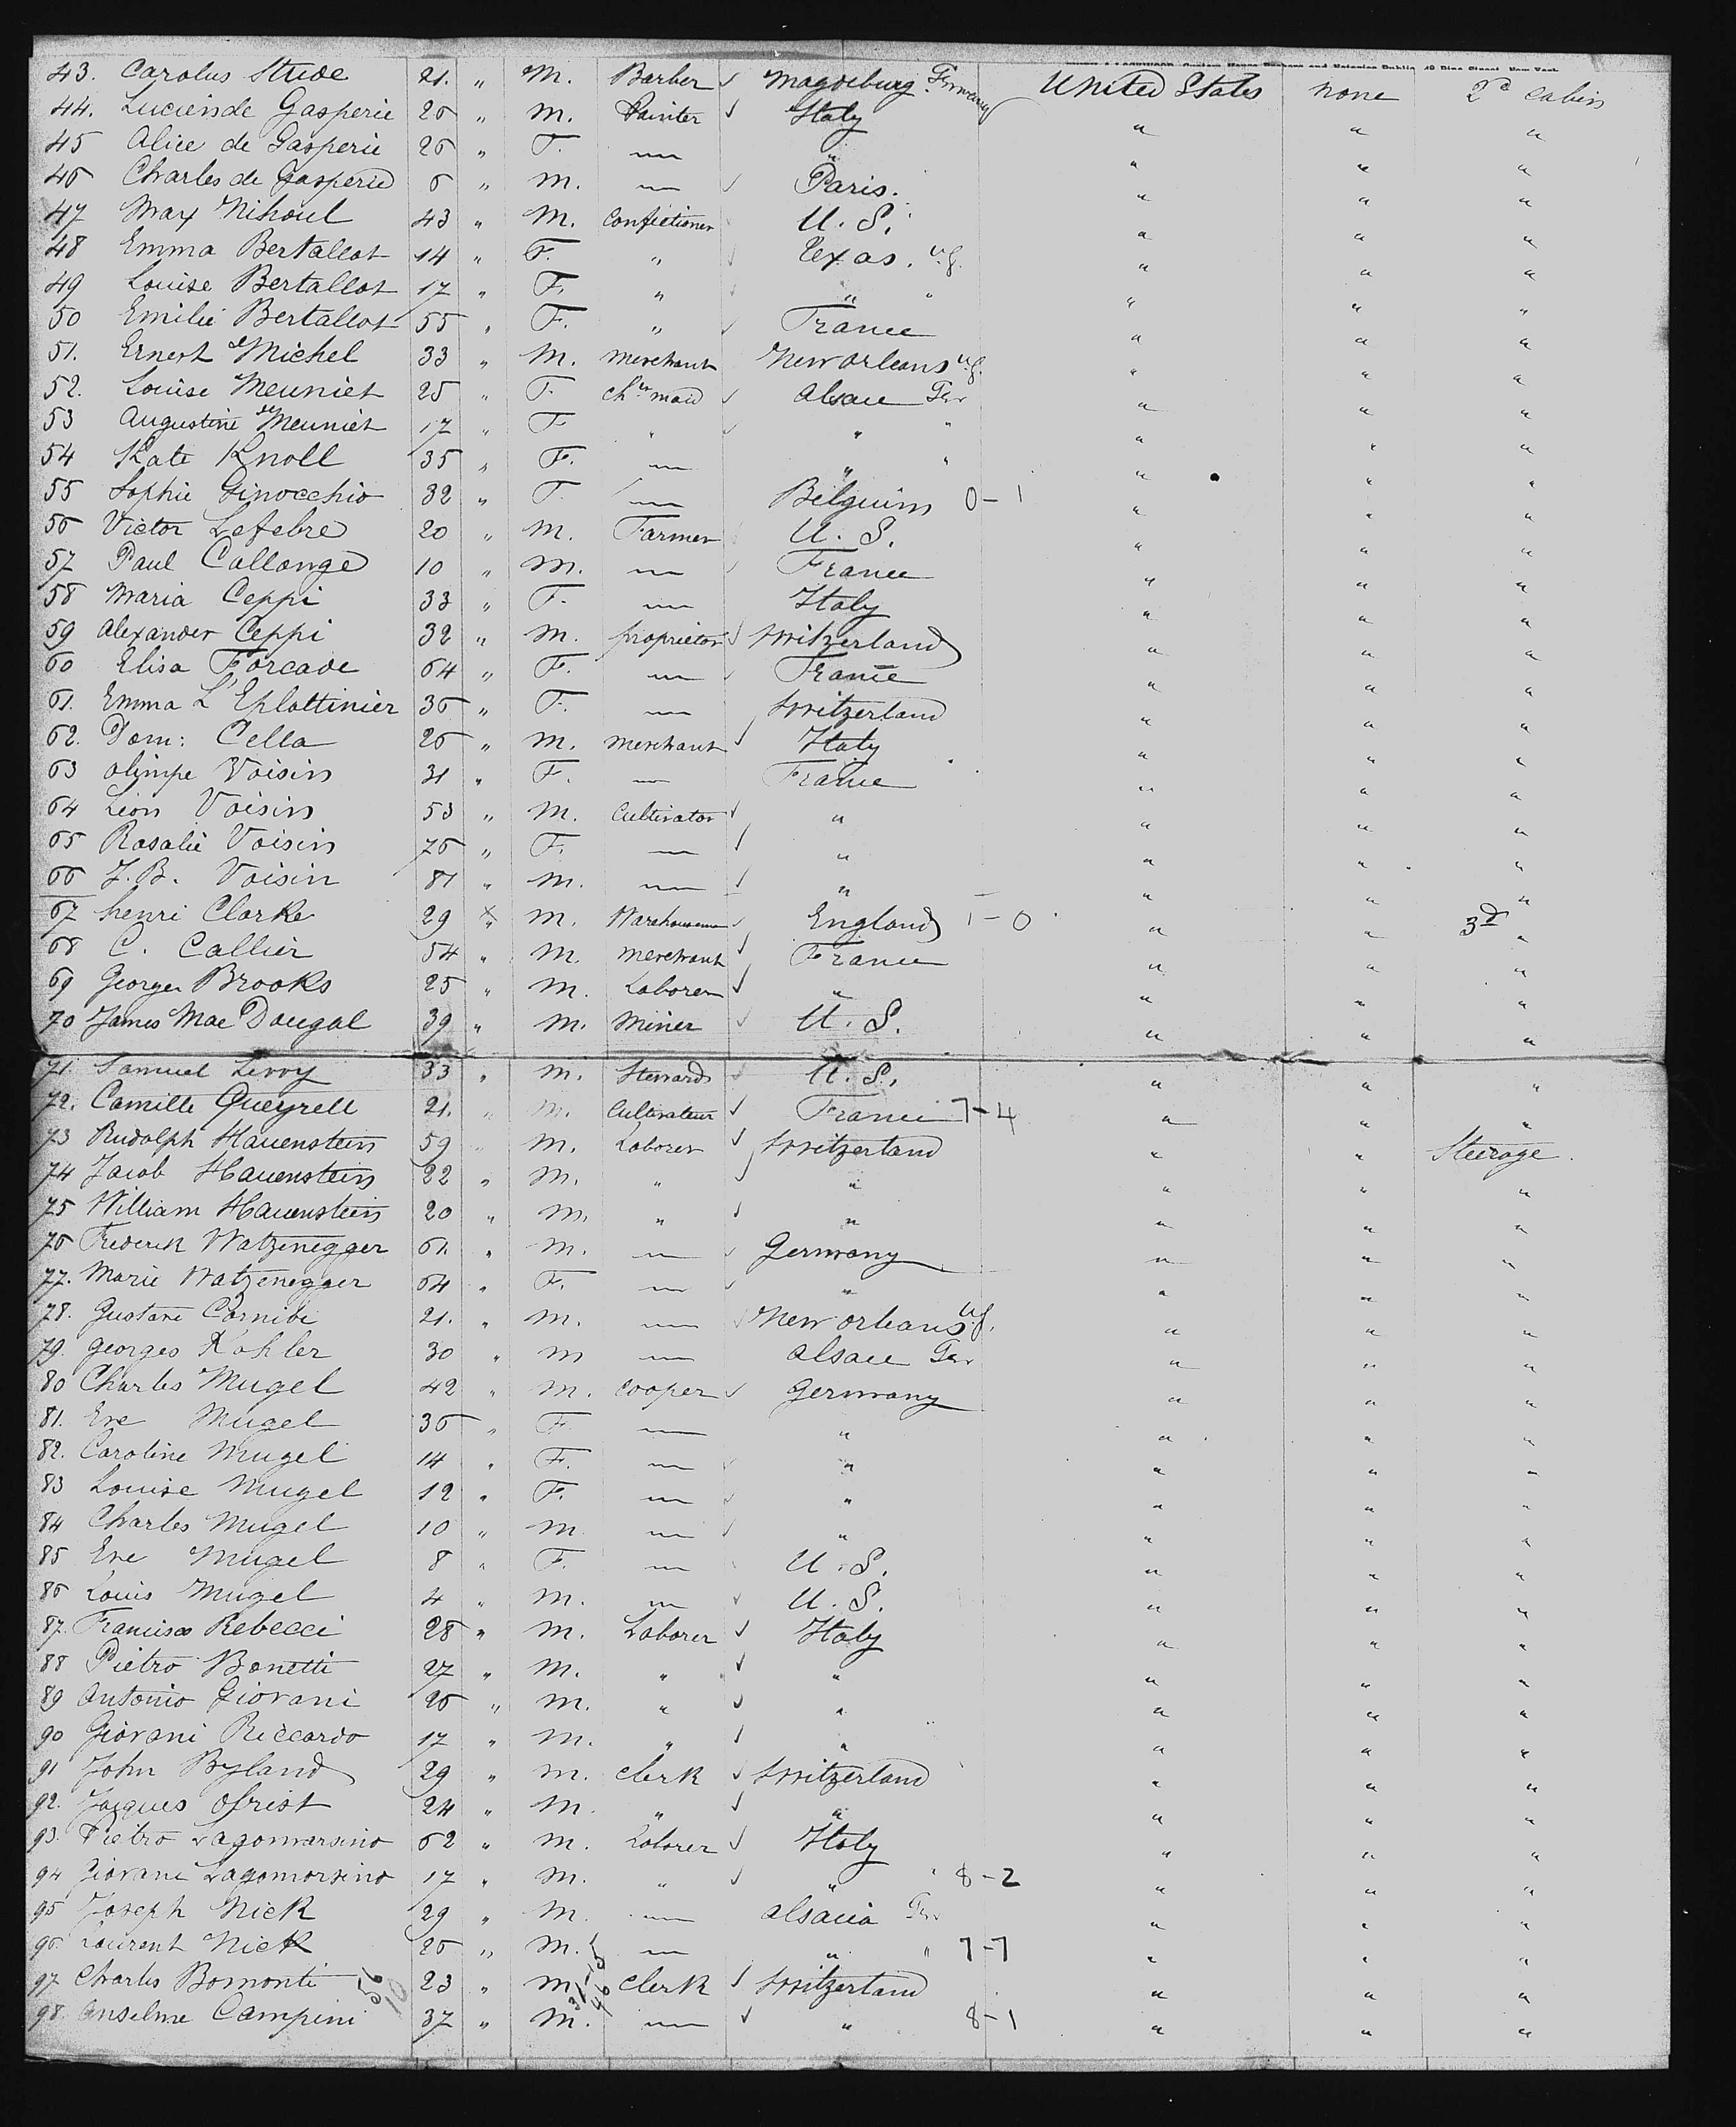 43. Carolus Stude 21. " M. Barber Magdeburg Germany United States none 2d cabin
44. Lucien de Gasperie 26 " M. Painter Italy " " "
45 Alice de Gasperie 26 " F. — " " " "
46 Charles de Gasperie 6 " M. — Paris. " " "
47 Max Nihoul 43 " M. Confectioner U. S. " " "
48 Emma Bertallot 14 " F. " Texas. U.S. " " "
49 Louise Bertallot 17 " F. " " " " " "
50 Emilie Bertallot 55 " F. " France " " "
51. Ernest Michel 33 " M. Merchant New Orleans U.S. " " "
52. Louise Meuniet 25 " F. Chr maid Alsace Ger " " "
53 Augustine Meuniet 17 " F " " " " " "
54 Kate Knoll 35 " F. — " " " " "
55 Sophie Ginocchio 32 " F. — Belguim 0-1 " " "
56 Victor Lefebre 20 " M. Farmer U. S. " " "
57 Paul Collonge 10 " M. — France " " "
58 Maria Ceppi 33 " F. — Italy " " "
59 Alexander Ceppi 32 " M. proprietor Switzerland " " "
60 Elisa Forcade 64 " F. — France " " "
61. Emma L'Eplattinier 36 " F. — Switzerland " " "
62. Dom: Cella 26 " M. Merchant Italy " " "
63 Olimpe Voisin 31 " F. — France " " "
64 Leon Voisin 53 " M. Cultivator " " " "
65 Rosalie Voisin 76 " F. — " " " "
66 J. B. Voisin 81 " M. — " " " "
67 Henri Clarke 29 " M. Warehouseman England 1-0 " " 3d "
68 C. Callier 54 " M. Merchant France " " "
69 Georges Brooks 25 " M. Laborer " " " "
70 James Mac Dougal 39 " M. Miner U. S. " " "
71. Samuel Levoy 33 " M. Steward U. S. " " "
72. Camille Queyrell 21. " M. Cultivateur France 7-4 " " "
73 Rudolph Hauenstein 59 " M. Laborer Switzerland " " Steerage.
74 Jacob Hauenstein 22 " M. " " " " "
75 William Hauenstein 20 " M. " " " " "
76 Frederik Watzenegger 61. " M. — Germany " " "
77. Marie Watzenegger 64 " F. — " " " "
78. Gustave Cornibe 21. " M. — New Orleans U.S. " " "
79. Georges Kohler 30 " M — Alsace Ger " " "
80 Charles Mugel 42 " M. Cooper Germany " " "
81. Eve Mugel 36 " F — " " " "
82. Caroline Mugel 14 " F. — " " " "
83 Louise Mugel 12 " F. — " " " "
84 Charles Mugel 10 " M — " " " "
85 Eve Mugel 8 " F. — U. S. " " "
86 Louis Mugel 4 " M. — U. S. " " "
87. Francisco Rebecci 28 " M. Laborer Italy " " "
88 Pietro Bonetti 27 " M. " " " " "
89 Antonio Giovani 26 " M. " " " " "
90 Giovani Riccardo 17 " M. " " " " "
91 John Byland 29 " M. Clerk Switzerland " " "
92. Jacques Ofrist 24 " M. " " " " "
93. Pietro Lagomarsino 62 " M. Laborer Italy " " "
94 Giovani Lagomorsino 17 " M. " " " 8-2 " " "
95 Joseph Nick 29 " M. — Alsacia Ger " " "
96. Laurent Nick 26 " M. — " " 7-7 " " "
97 Charles Bomonti 23 " M. Clerk Switzerland " " "
98. Anselme Campini 37 " M. — " 8-1 " " "
56
10